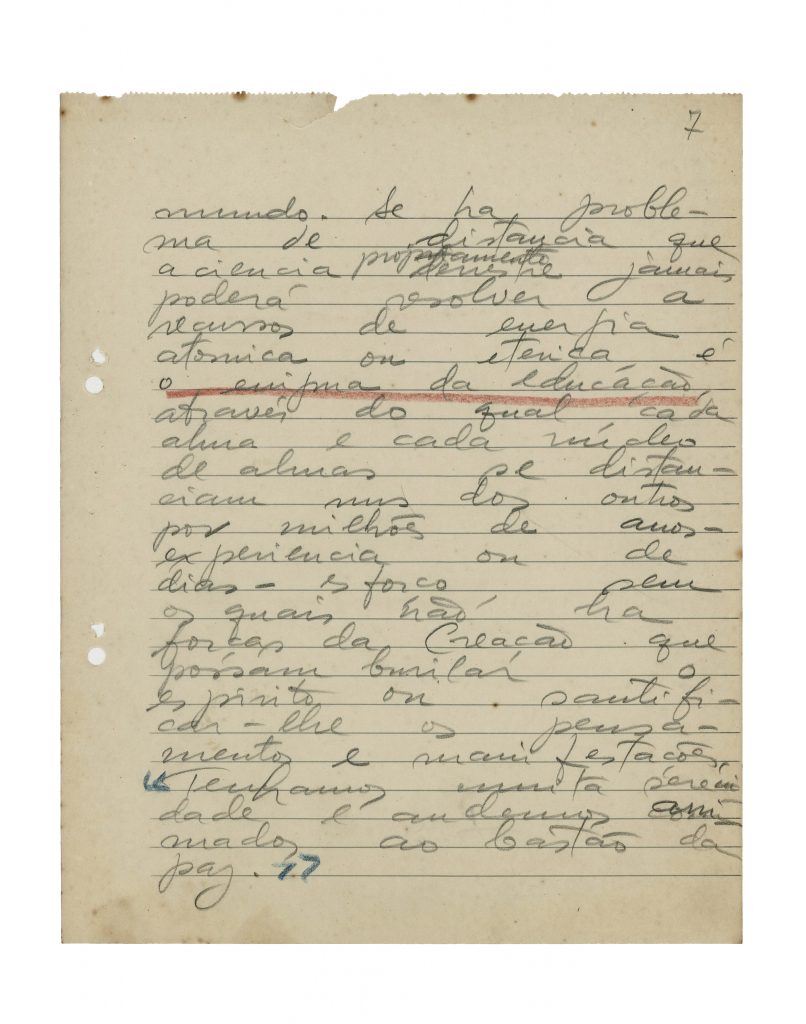 7
mundo. Se ha proble-
ma de distancia que
a ciencia propriamente terrestre jamais
poderá resolver a
recursos de energia
atomica ou eterica é
o enigma da educação,
através do qual cada
alma e cada núcleo
de almas se distan-
ciam uns dos outros
por milhões de anos-
experiencia ou de
dias-esforço sem
os quais não ha
forças da Creação que
possam burilar o
espirito ou santifi-
car-lhe os pensa-
mentos e manifestações.
"Tenhamos muita sereni
dade e andemos arri
mados ao bastão da
paz."